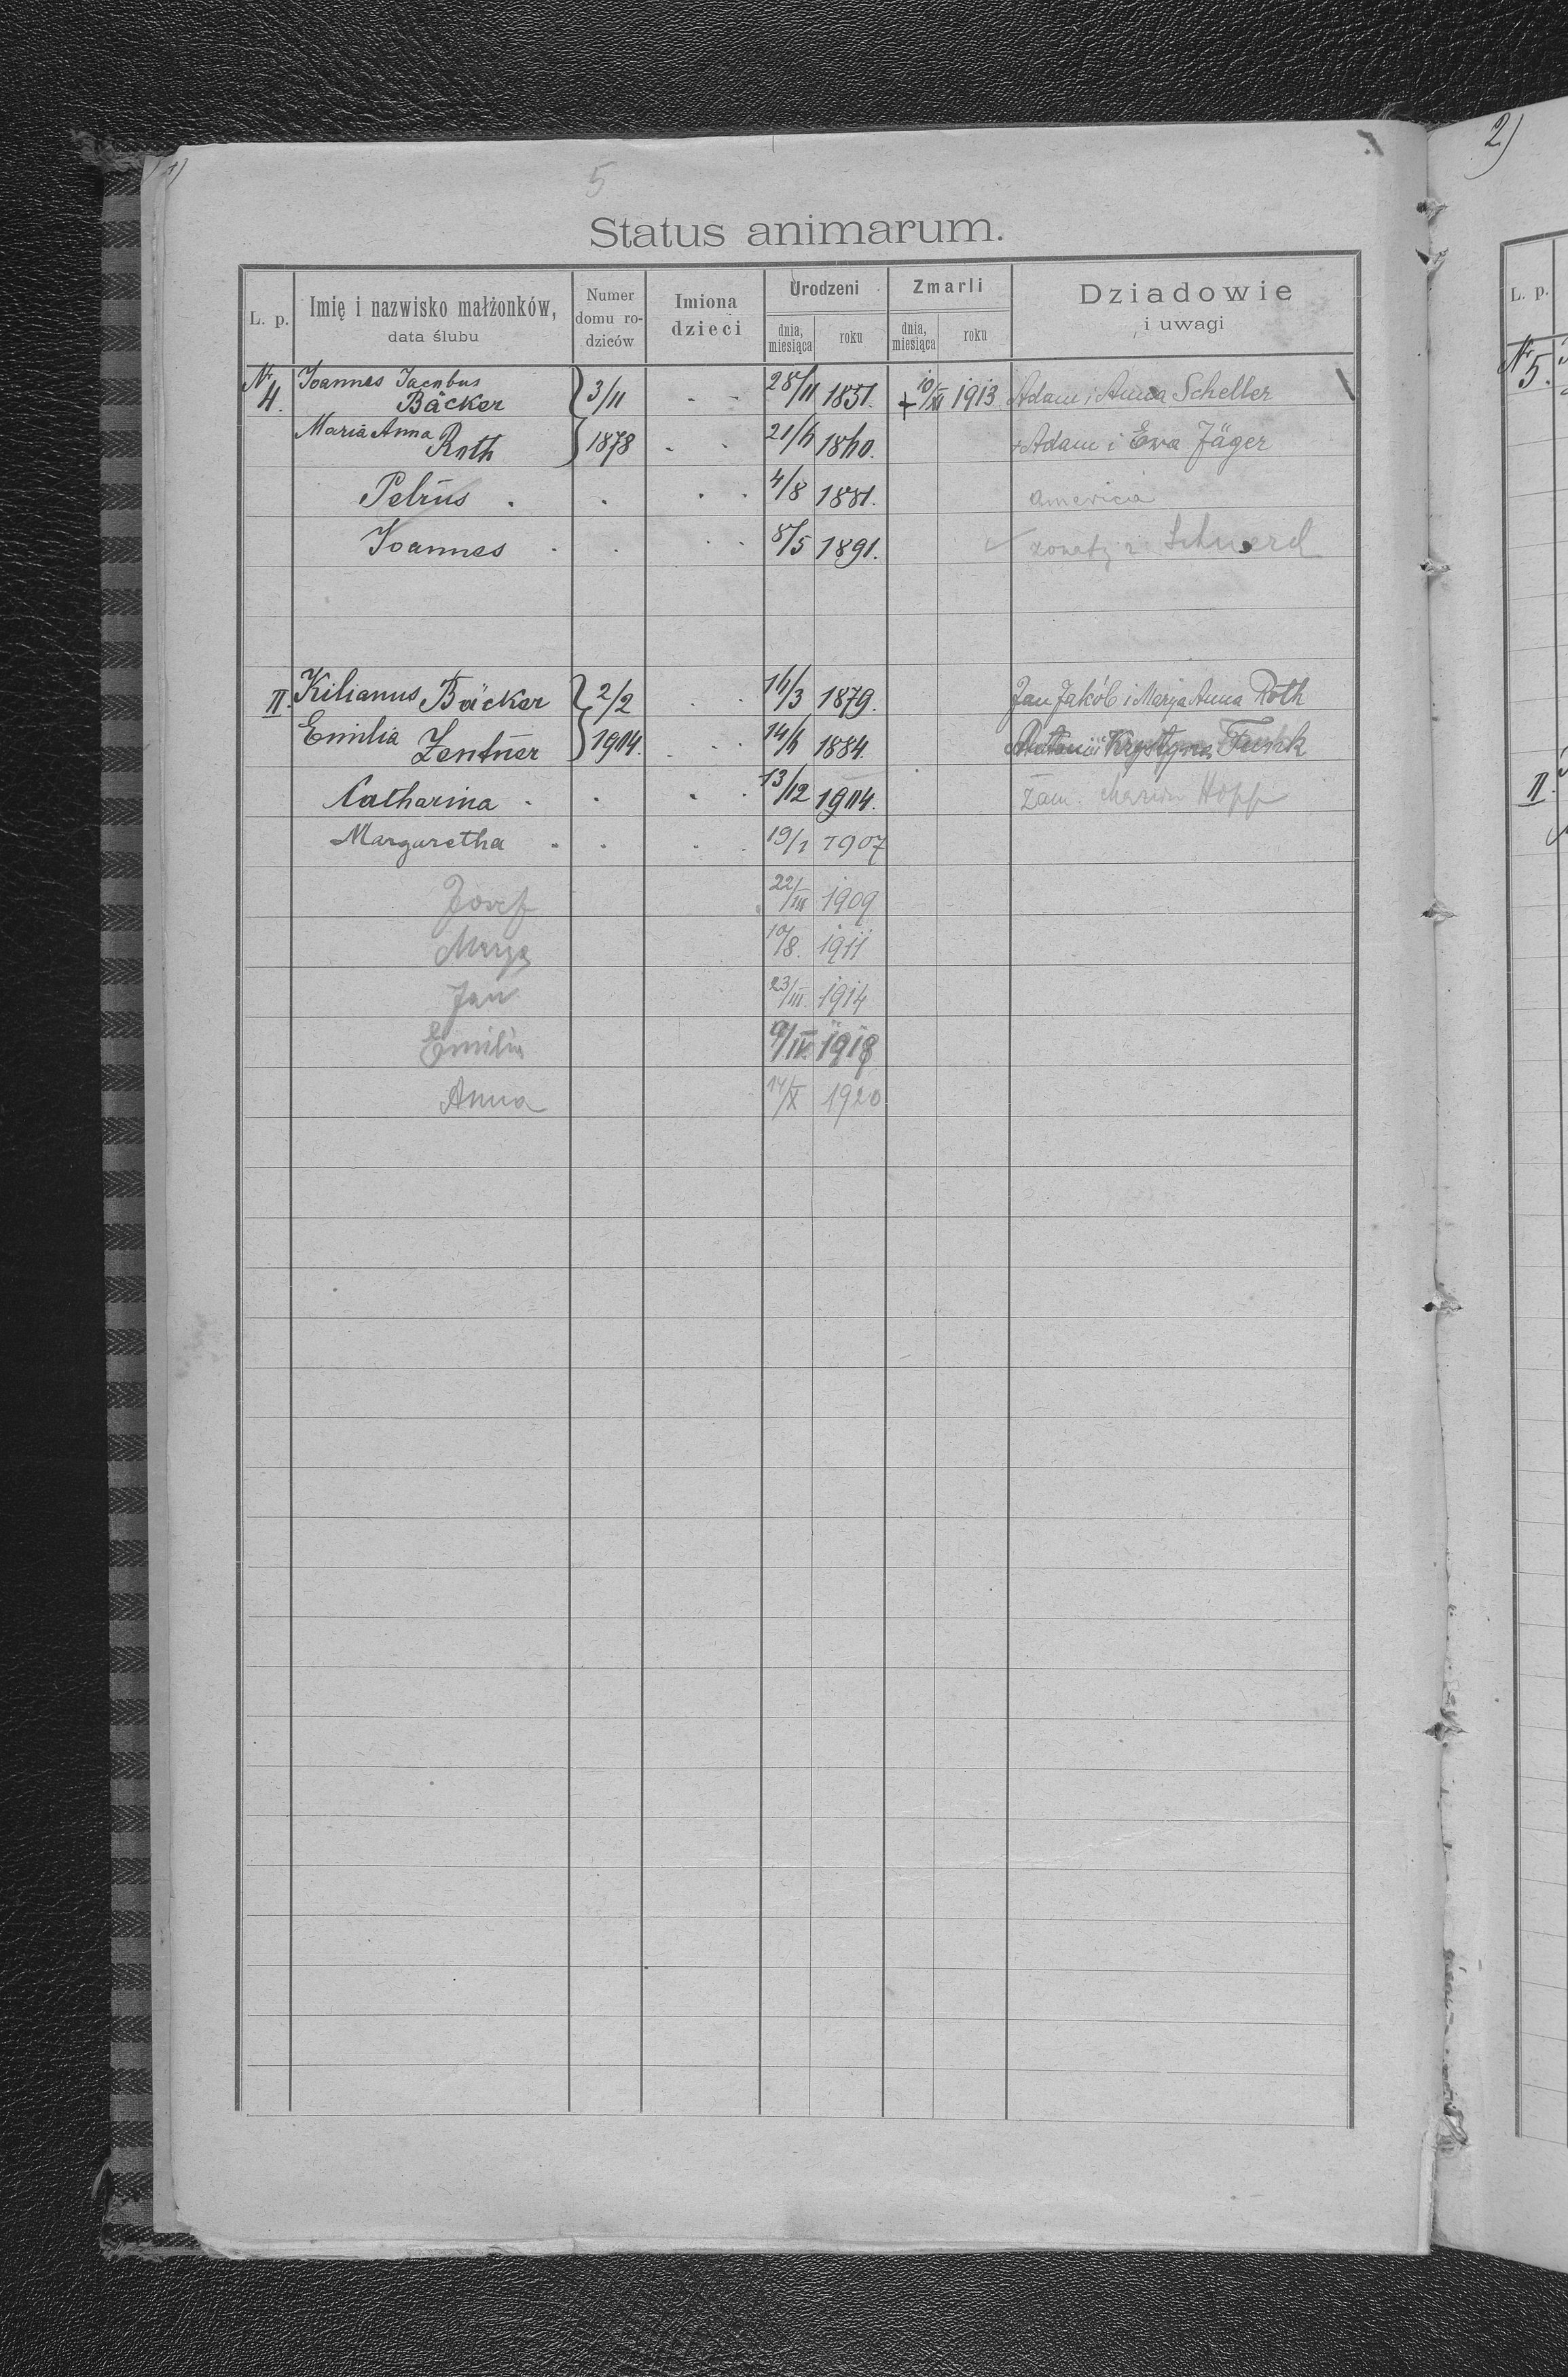 1)
5
2)
Status animarum.
L. p.
Imię i nazwisko małżonków,
data ślubu
Numer
domu ro-
dziców
Imiona
dzieci
Urodzeni
dnia,
miesiąca
roku
Zmarli
dnia,
miesiąca
roku
Dziadowie
i uwagi
Nr 4. Joannes Jacobus
Bäcker 3/11 28/11 1851. + 10/XI 1913. Adam i Anna Scheller
Maria Anna
Roth 1878 21/6 1860. + Adam i Ewa Jäger
Petrus 4/8 1881. America
Joannes 8/5 1891. żonaty z
II. Kilianus Bäcker 2/2 16/3 1879. Jan Jakób i Marja Anna Roth
Emilia Zentner 1904. 14/6 1884. Antoni i Krystyna Funk
Catharina 13/12 1904. Zam. Hopf
Margaretha 19/1 1907
Josef 22/III 1909
Marya 10/8. 1911
Jan 23/III. 1914
Emilia 9/IV. 1918
Anna 14/X 1920
L. p.
Nr 5.
II.